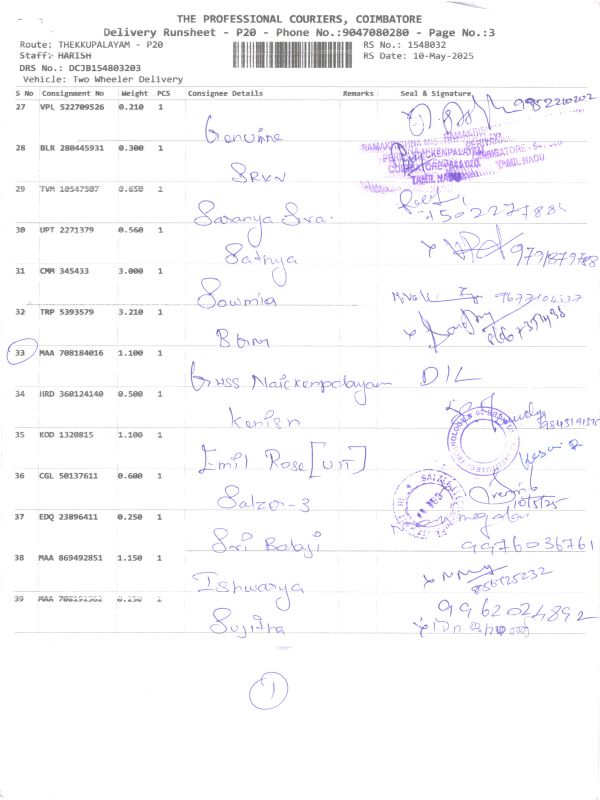 THE PROFESSIONAL COURIERS, COIMBATORE
Delivery Runsheet - P20 - Phone No.:9047080280 - Page No.:3
Route: THEKKUPALAYAM - P20 RS No.: 1548032
Staff: HARISH RS Date: 10-May-2025
DRS No.: DCJB154803203
Vehicle: Two Wheeler Delivery
S No Consignment No Weight PCS Consignee Details Remarks Seal & Signature
27 VPL 522709526 0.210 1
Genuine
28 BLR 280445931 0.300 1
SRKV
29 TVM 10547587 0.650 1
Saranya Siva.
30 UPT 2271379 0.560 1
Sathya
31 CMM 345433 3.000 1
Sowmia 9677104337
32 TRP 5393579 3.210 1
33 MAA 708184016 1.100 1
GHSS Naickenpalayam DIL
34 HRD 360124140 0.500 1
Kenisn
35 KOD 1320815 1.100 1
Emil Rose [UIT]
36 CGL 50137611 0.600 1
Salzer-3 10/5/25
37 EDQ 23896411 0.250 1
Sri Balaji 9976036761
38 MAA 869492851 1.150 1
Ishwarya
39 MAA 708191362 0.250 1
9962024892
Sujitha
1